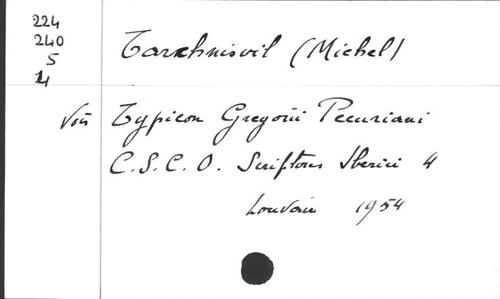 224
240
5
4
Tarchnisvil (Michel)
Voir Typicon Gregorii Pecuriani
C.S.C.O. Scriptores Iberici 4
Louvain 1954